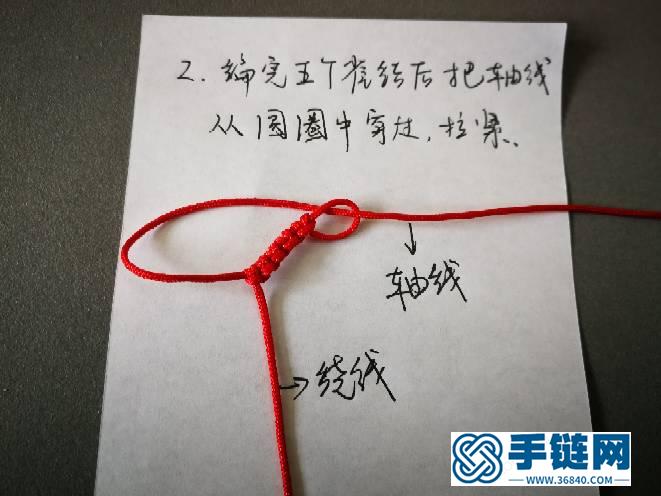 2. 编完五个雀结后把轴线
从圆圈中穿过,拉紧.
轴线
绕线
手链网
WWW.36840.COM